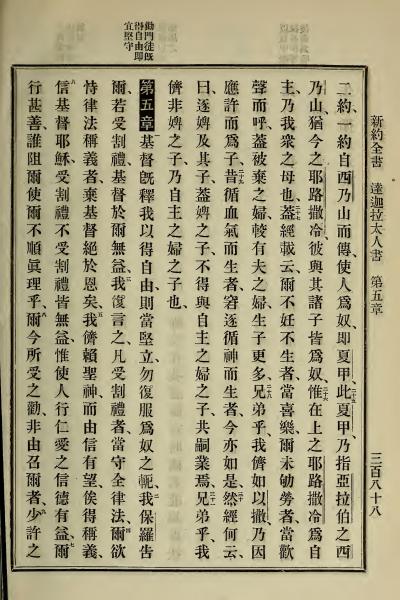 新約全書 達迦拉太人書 第五章 三百八十八
勖門徒既
得自由即
宜堅守
二約一約自西乃山而傳使人爲奴即夏甲此夏甲乃指亞拉伯之西
乃山猶今之耶路撒冷彼與其諸子皆爲奴惟在上之耶路撒冷爲自
主乃我衆之母也蓋經載云爾不妊不生者當喜樂爾未劬勞者當歡
聲而呼蓋被棄之婦較有夫之婦生子更多兄弟乎我儕如以撒乃因
應許而爲子昔循血氣而生者窘逐循神而生者今亦如是然經何云
曰逐婢及其子蓋婢之子不得與自主之婦之子共嗣業焉兄弟乎我
儕非婢之子乃自主之婦之子也
第五章 基督旣釋我以得自由則當堅立勿復服爲奴之軛我保羅告
爾若受割禮基督於爾無益我復言之凡受割禮者當守全律法爾欲
恃律法稱義者棄基督絕於恩矣我儕賴聖神而由信有望俟得稱義
信基督耶穌受割禮不受割禮皆無益惟使人行仁愛之信德有益爾
行甚善誰阻爾使爾不順眞理乎爾今所受之勸非由召爾者少許之